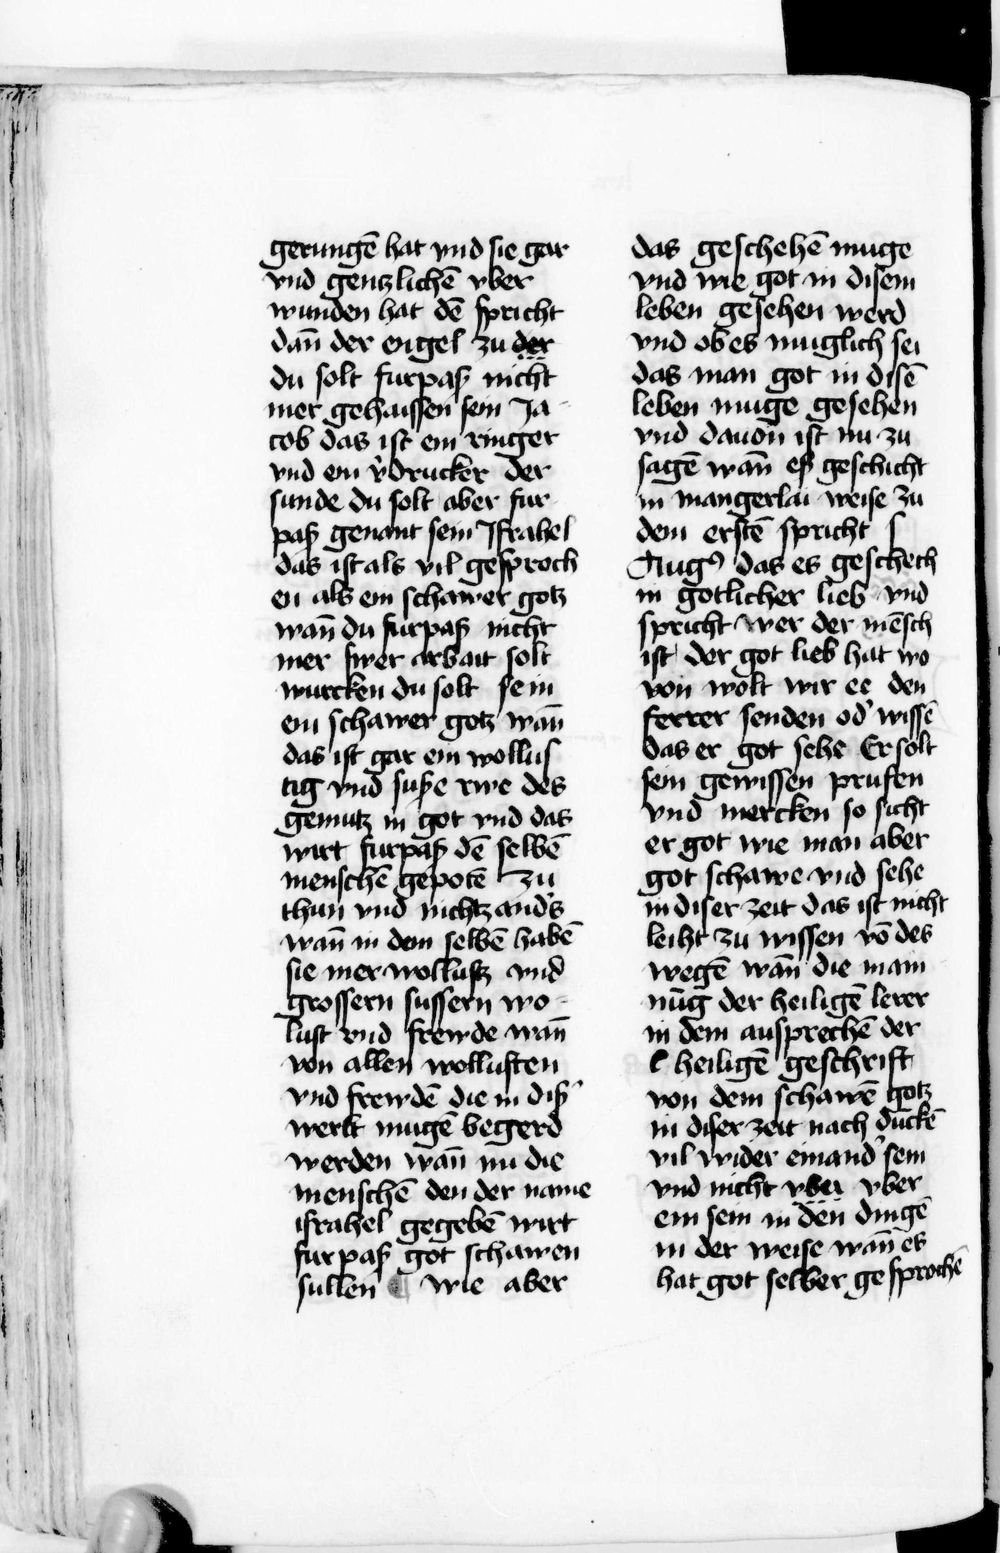 gerungē hat vnd sie gar
vnd gentzlichē vber
wunden hat dē spricht
dañ der engel zu der
du solt furpaß nicht
mer gehaissen sein Ja-
cob das ist ein ringer
vnd ein v̓drucker der
sunde du solt aber fur
paß genant sein Jsrahel
das ist als vil gesproch
en als ein schawer gotz
wañ du furpaß nicht
mer swer arbait solt
wurcken du solt sein
ein schawer gotz wañ
das ist gar ein wollus
tig vnd suße rwe des
gemutz in got vnd das
wirt furpaß dē selbē
menschē gepotē zu
thun vnd nichtz and̓s
wañ in dem selbē habē
sie mer wollustz vnd
grossern sussern wo-
lust vnd frewde wañ
von allen wollusten
vnd frewdē die in diß̓
werlt mugē begerd
werden wañ nu die
menschē den der name
israhel gegebē wirt
furpaß got schawen
sullen ¶ wie aber
das geschehē muge
vnd wie got in disem
leben gesehen werd
vnd ob es muglich sei
das man got in disē
leben muge gesehen
vnd dauon ist nu zu
sagē wañ eß geschicht
in mangerlai weise zu
dem erstē spricht s
Augꝰ das es geschech
in gotlicher lieb vnd
spricht wer der mēsch
ist der got lieb hat wo
von wolt wir ee den
ferrer senden od̓ wissē
das er got sehe Er solt
sein gewissen prufen
vnd mercken so sicht
er got wie man aber
got schawe vnd sehe
in diser zeit das ist nicht
leiht zu wissen vō des
wegē wañ die main
nūg der heiligē lerer
in dem ausprechē der
l heiligē geschrift
von dem schawē gotz
in diser zeit nach duckē
vil wider einand̓ sein
vnd nicht vbei vber
ein sein in den dingē
in der weise wañ es
hat got selber gesprochē